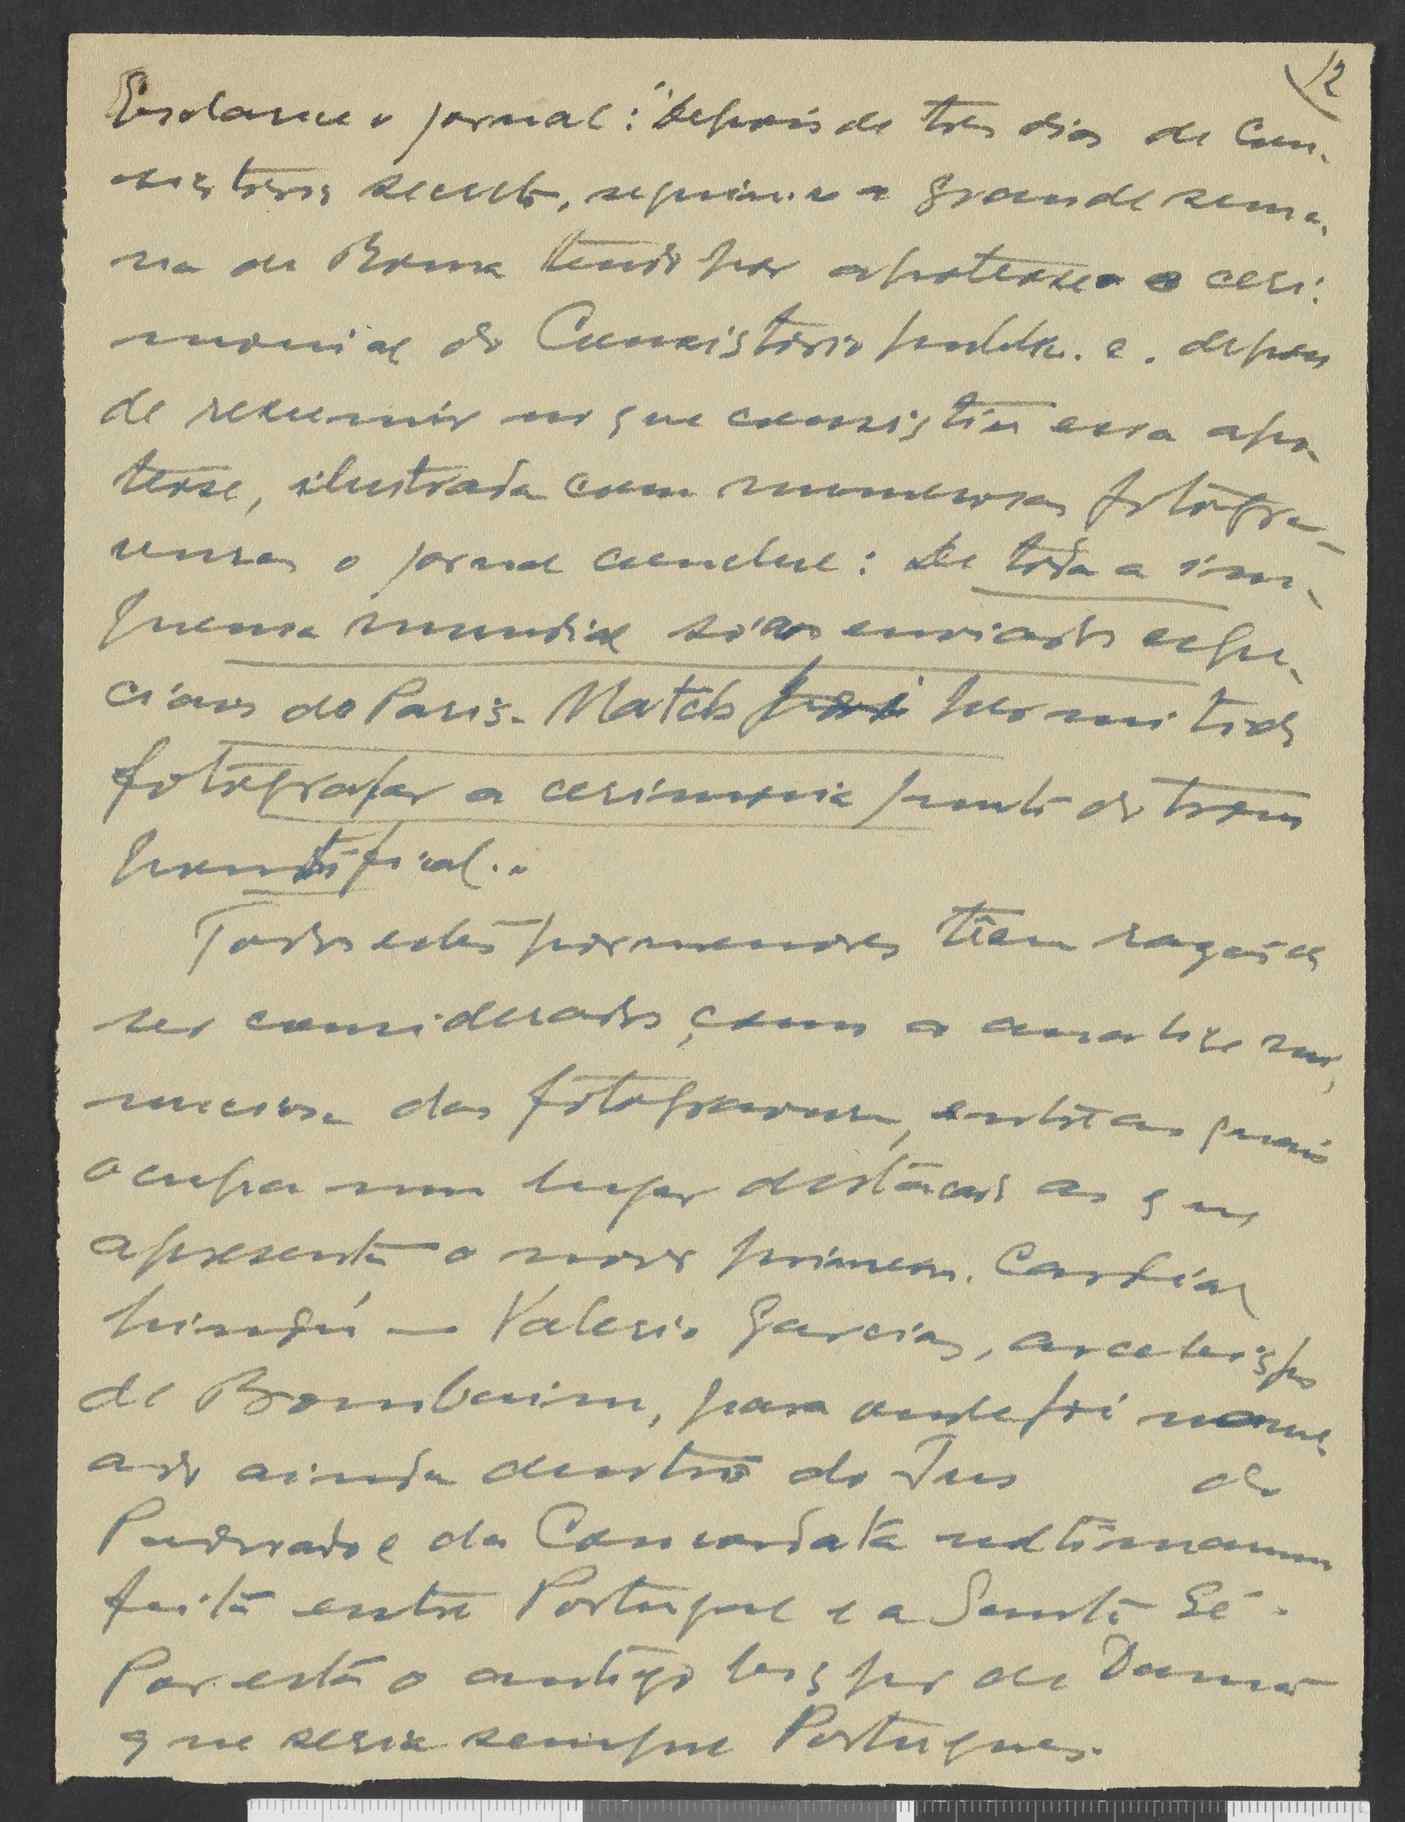 12
Esclarece o jornal: "Depois de tres dias de Con-
sistorio secreto, seguiu-se a grande sema-
na de Roma tendo por apoteose o ceri-
monial do Consistorio publico. e. depois
de resumir no que consistiu essa apo-
teose, ilustrada com numerosas fotogra-
vuras o jornal conclue: De toda a im-
prensa mundial só aos enviados espe-
ciais do Paris-Match foi permitido
fotografar a cerimonia junto do trono
pontifical..
Todos estes pormenores têm razão de
ser considerados, como a analise mi-
nuciosa das fotogravuras, entre as quais
ocupa um lugar destacado as que
apresenta o novo primeiro. Cardial
hindú — Valerio Gracias, arcebispo
de Bombaim, para onde foi nome-
ado ainda dentro do Jus do
Padroado e da Concordata ultimamente
feita entre Portugal e a Santa Sé.
Por esta o antigo bispo de Damão
que seria sempre Portugues.